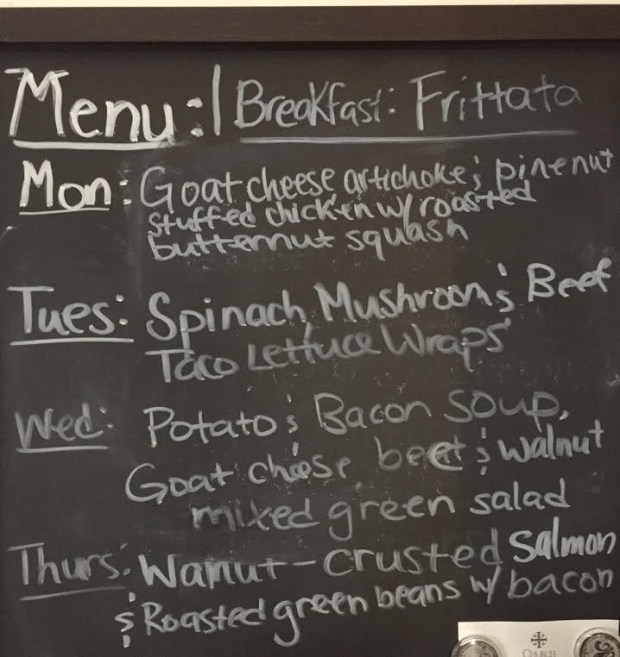 Menu: | Breakfast: Frittata
Mon: Goat cheese artichoke & pinenut
stuffed chicken w/ roasted
butternut squash
Tues: Spinach Mushroom & Beef
Taco Lettuce Wraps
Wed: Potato & Bacon Soup,
Goat cheese, beet & walnut
mixed green salad
Thurs: Walnut-crusted Salmon
& Roasted green beans w/ bacon
CHURCH